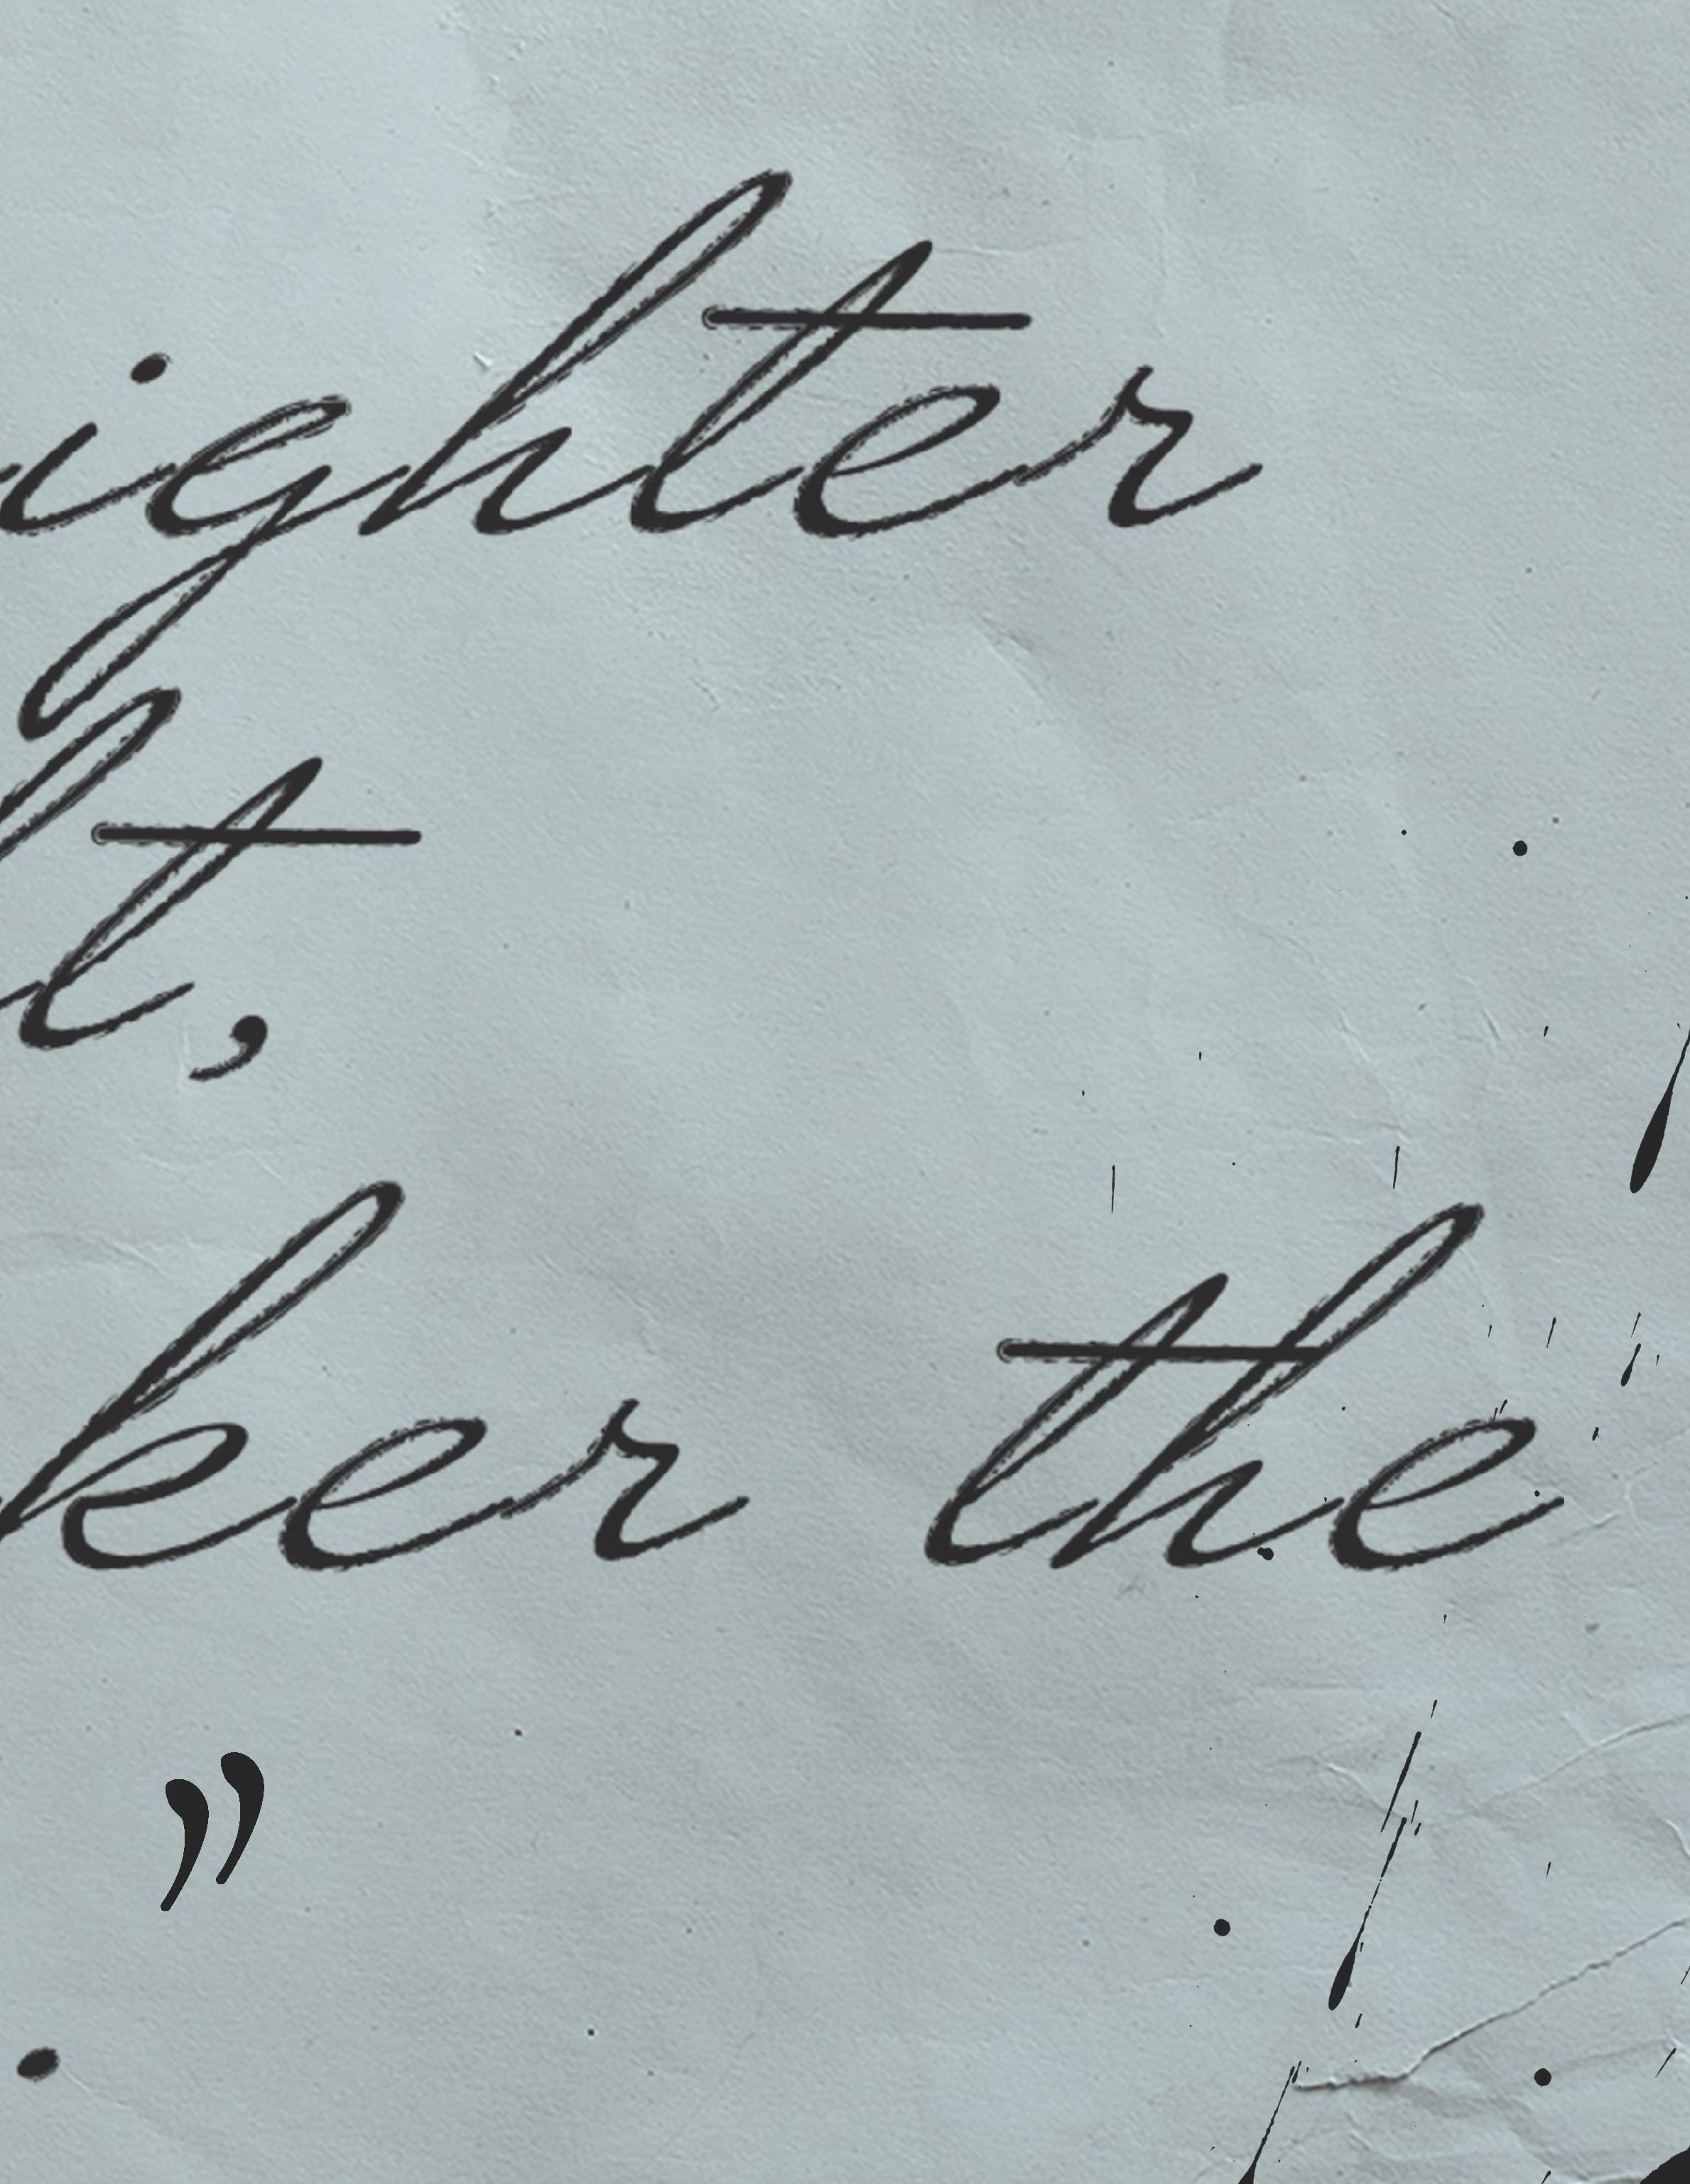 ighter
ht,
ker the
.”